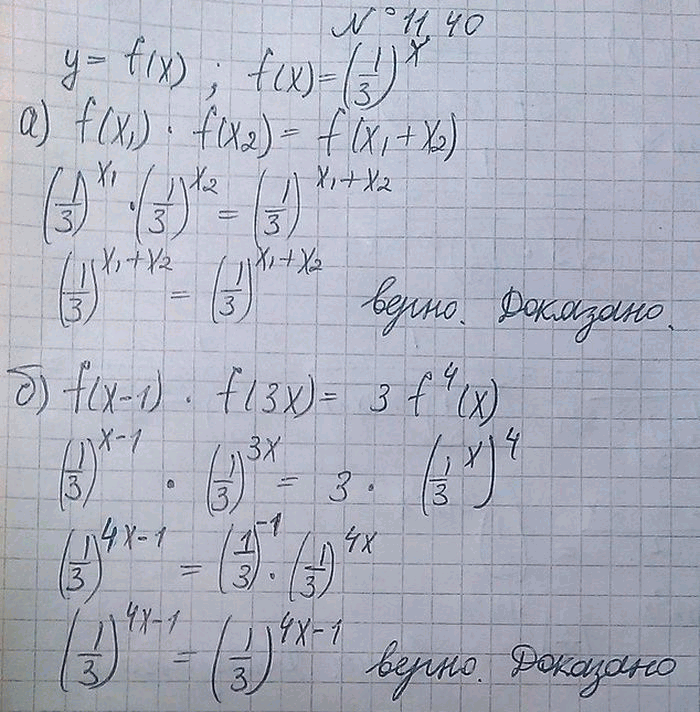 № 11.40
y = f(x) ; f(x) = (1/3)^x
а) f(x₁) · f(x₂) = f(x₁ + x₂)
(1/3)^x₁ · (1/3)^x₂ = (1/3)^x₁+x₂
(1/3)^x₁+x₂ = (1/3)^x₁+x₂ верно. Доказано.
б) f(x-1) · f(3x) = 3 f⁴(x)
(1/3)^x-1 · (1/3)^3x = 3 · (1/3^x)^4
(1/3)^4x-1 = (1/3)^-1 · (1/3)^4x
(1/3)^4x-1 = (1/3)^4x-1 верно. Доказано